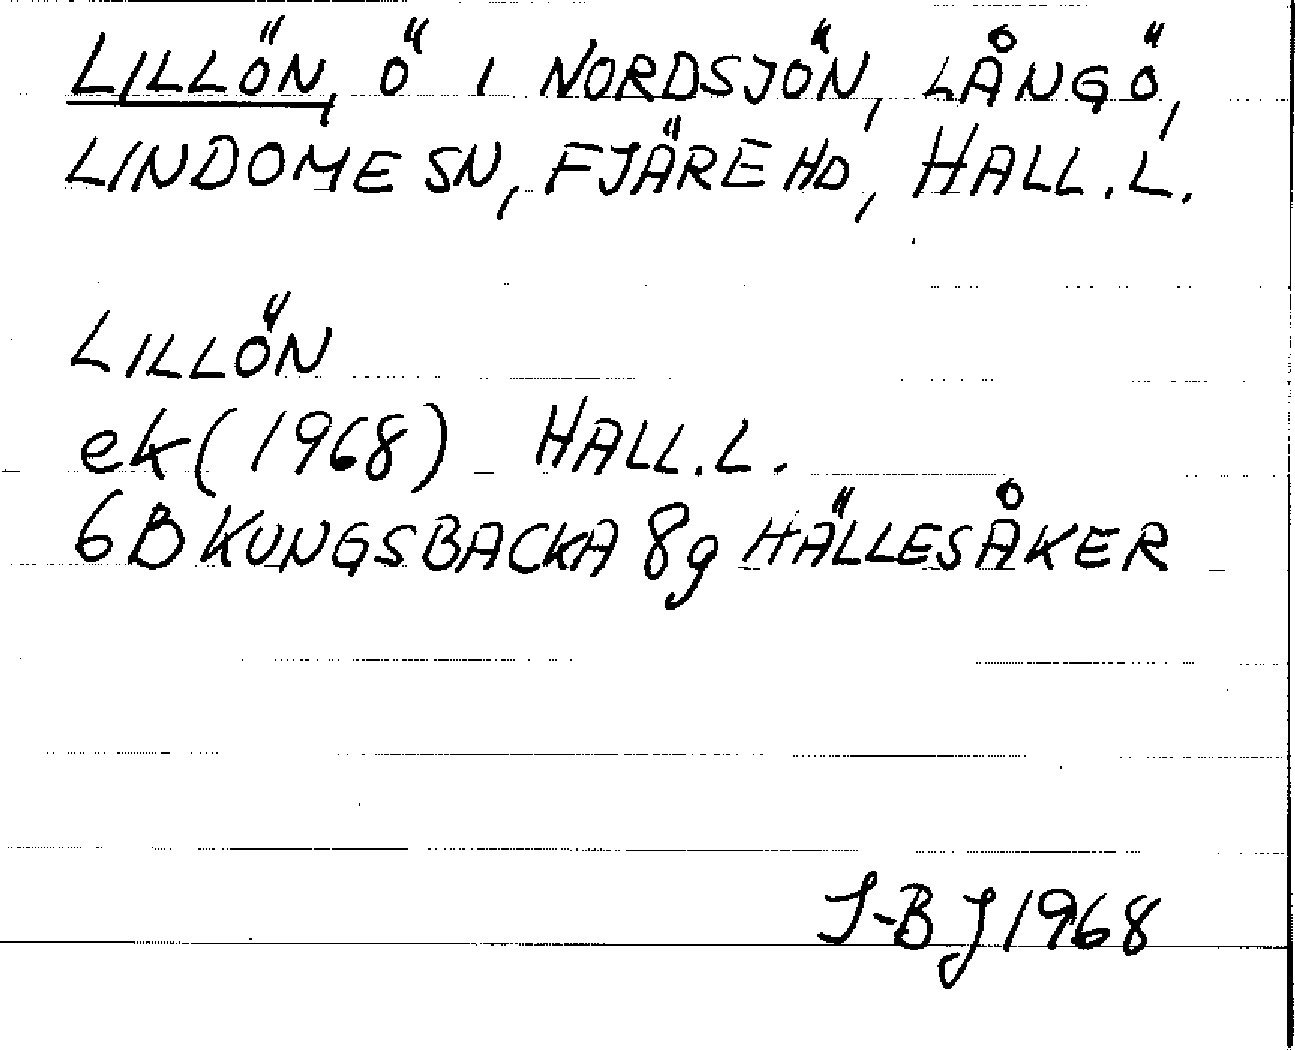 LILLÖN, Ö I NORDSJÖN, LÅNGÖ,
LINDOME SN, FJÄRE HD, HALL.L.
LILLÖN
ek (1968) HALL.L.
6B KUNGSBACKA 8g HÄLLESÅKER
J-B J 1968